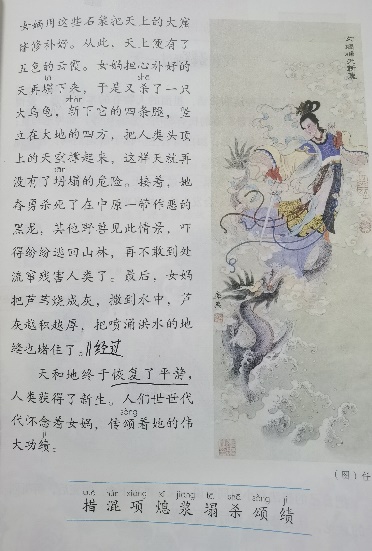 女娲用这些石浆把天上的大窟
窿修补好。从此，天上便有了
五色的云霞。女娲担心补好的
天再塌下来，于是又杀了一只
大乌龟，斩下它的四条腿，竖
立在大地的四方，把人类头顶
上的天空撑起来，这样天就再
没有了坍塌的危险。接着，她
奋勇杀死了在中原一带作恶的
黑龙，其他野兽见此情景，吓
得纷纷逃回山林，再不敢到处
流窜残害人类了。最后，女娲
把芦苇烧成灰，撒到水中，芦
灰越积越厚，把喷涌洪水的地
缝也堵住了。‖经过
天和地终于恢复了平静，
人类获得了新生。人们世世代
代怀念着女娲，传颂着她的伟
大功绩。
（图）任
cuò hùn xiàng xī jiāng tā shā sòng jì
措 混 项 熄 浆 塌 杀 颂 绩